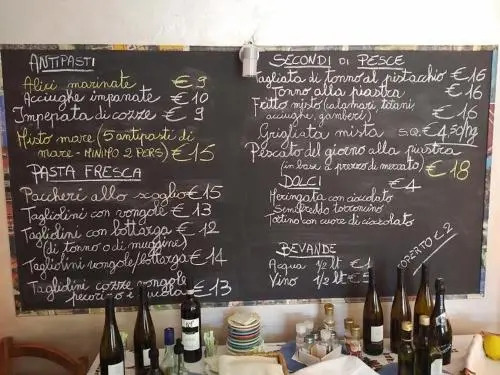 ANTIPASTI
Alici marinate € 9
Acciughe impanate € 10
Impepata di cozze € 9
Misto mare (5 antipasti di
mare - MINIMO 2 PERS) € 15
PASTA FRESCA
Paccheri allo scoglio € 15
Tagliolini con vongole € 13
Tagliolini con bottarga € 12
(di tonno o di muggine)
Tagliolini vongole/bottarga € 14
Taglidini cozze vongole
pecorino e rucola € 13
SECONDI DI PESCE
Tagliata di tonno al pistacchio € 16
Tonno alla piastra € 16
Fritto misto (calamari totani
acciughe, gamberi) € 16
Grigliata mista S.Q. € 4,50/hg
Pescato del giorno alla piastra
(in base a prezzo di mercato) € 18
DOLCI € 4
Meringata con cioccolato
Semifreddo torroncino
Tortino con cuore di cioccolato
BEVANDE
Acqua 1/2 lt € 1
Vino 1/2 lt € 5
COPERTO € 2